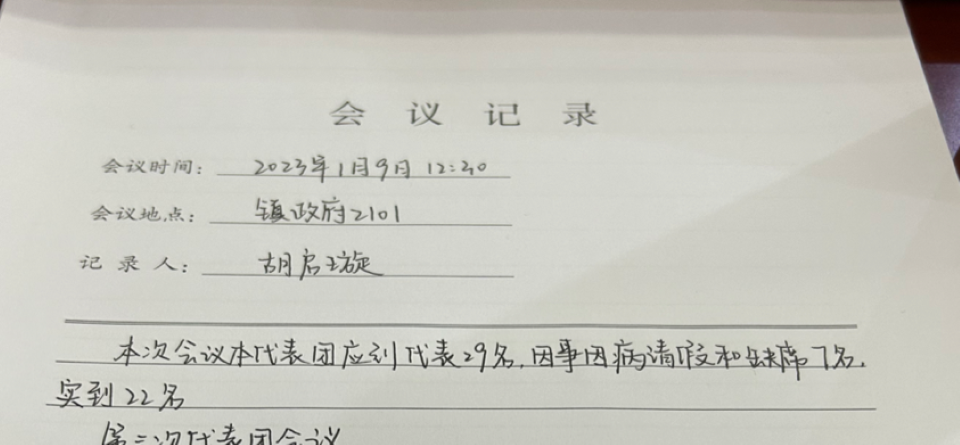 会议记录
会议时间：2023年1月9日 12:20
会议地点：镇政府2101
记录人：胡启璇
本次会议本代表团应到代表29名，因事因病请假和缺席7名，
实到22名
第三次代表团会议